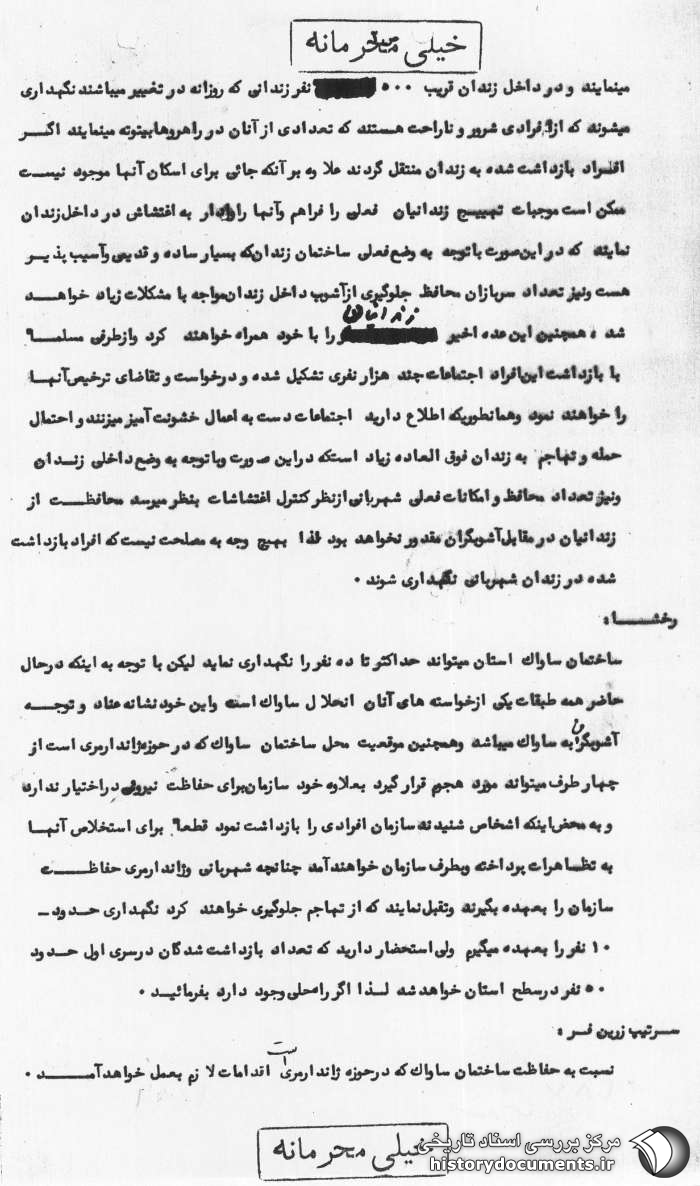 خیلی محرمانه
مینمایند و در داخل زندان قریب ۵۰۰ نفر زندانی که روزانه در تغییر میباشند نگهداری
میشوند که از افرادی شرور و ناراحت هستند که تعدادی از آنان در راهروها بیتوته مینمایند اگر
افراد بازداشت شده به زندان منتقل گردند علاوه بر آنکه جائی برای اسکان آنها موجود نیست
ممکن است موجبات تهییج زندانیان فعلی را فراهم وآنها را وادار به اغتشاش در داخل زندان
نمایند که در این صورت با توجه به وضع فعلی ساختمان زندان که بسیار ساده و قدیمی وآسیب پذیر
هست ونیز تعداد سربازان محافظ جلوگیری از آشوب داخل زندان مواجه با مشکلات زیاد خواهد
شد ، همچنین این عده اخیر زندانیان را با خود همراه خواهند کرد وازطرفی مسلما
با بازداشت این افراد اجتماعات چند هزار نفری تشکیل شده و درخواست و تقاضای ترخیص آنها
را خواهند نمود وهمانطوریکه اطلاع دارید اجتماعات دست به اعمال خشونت آمیز میزنند و احتمال
حمله و تهاجم به زندان فوق العاده زیاد است که در این صورت وبا توجه به وضع داخلی زندان
ونیز تعداد محافظ و امکانات فعلی شهربانی ازنظر کنترل اغتشاشات بنظر میرسد محافظت از
زندانیان در مقابل آشوبگران مقدور نخواهد بود لذا بهیچ وجه به مصلحت نیست که افراد بازداشت
شده در زندان شهربانی نگهداری شوند .
رخشا :
ساختمان ساواک استان میتواند حداکثر تا ده نفر را نگهداری نماید لیکن با توجه به اینکه در حال
حاضر همه طبقات یکی ازخواسته های آنان انحلال ساواک است واین خود نشانه عناد و توجه
آشوبگرا به ساواک میباشد وهمچنین موقعیت محل ساختمان ساواک که در حوزه ژاندارمری است از
چهار طرف میتواند مورد هجوم قرار گیرد بعلاوه خود سازمان برای حفاظت نیروئی در اختیار ندارد
و به محض اینکه اشخاص شنیدند سازمان افرادی را بازداشت نمود قطعا برای استخلاص آنها
به تظاهرات پرداخته وبطرف سازمان خواهند آمد چنانچه شهربانی وژاندارمری حفاظت
سازمان را بعهده بگیرند وتقبل نمایند که از تهاجم جلوگیری خواهند کرد نگهداری حدود
۱۰ نفر را بعهده میگیرم ولی استحضار دارید که تعداد بازداشت شدگان در سری اول حدود
۵۰ نفر در سطح استان خواهد شد لذا اگر راه حلی وجود دارد بفرمائید .
سرتیپ زرین فر :
نسبت به حفاظت ساختمان ساواک که در حوزه ژاندارمری است اقدامات لازم بعمل خواهد آمد .
خیلی محرمانه
مرکز بررسی اسناد تاریخی
historydocuments.ir